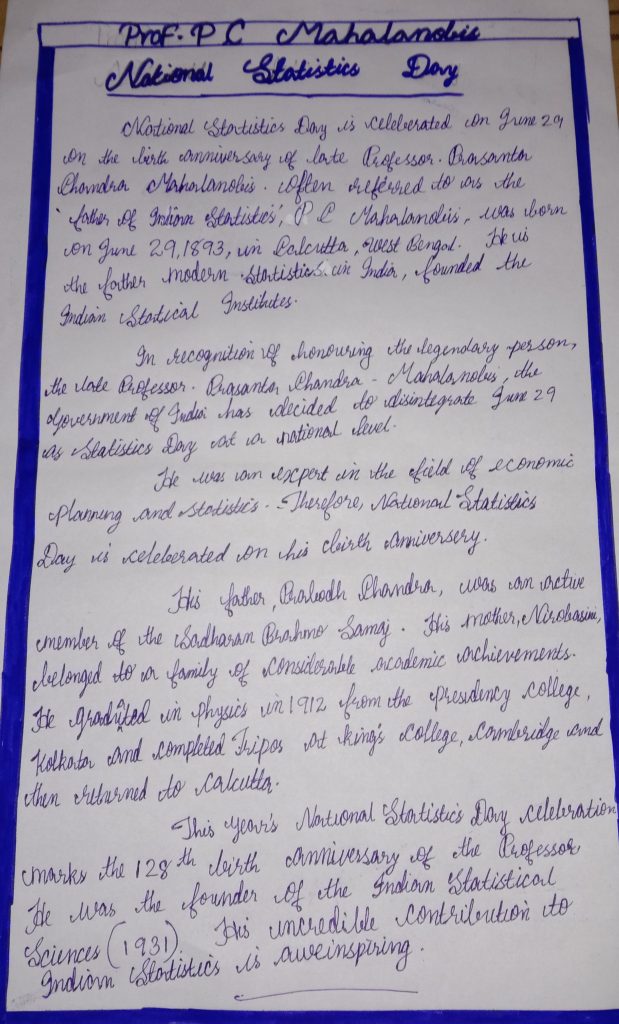 Prof. P C Mahalanobis
National Statistics Day
National Statistics Day is celeberated on June 29
on the birth anniversary of late Professor. Prasanta
Chandra Mahalanobis. Often referred to as the
'father of Indian Statistics', P C Mahalanobis, was born
on June 29, 1893, in Calcutta, West Bengal. He is
the father modern statistics in India, founded the
Indian Statical Institutes.
In recognition of honouring the legendary person,
the late Professor. Prasanta Chandra - Mahalanobis, the
Government of India has decided to disintegrate June 29
as Statistics Day at a national level.
He was an expert in the field of economic
planning and statistics. Therefore, National Statistics
Day is celeberated on his birth anniversery.
His father, Prabodh Chandra, was an active
member of the Sadharan Brahmo Samaj. His mother, Nirobasini,
belonged to a family of considerable academic achievements.
He graduated in physics in 1912 from the presidency college,
Kolkata and completed Tripos at king's college, cambridge and
then returned to calcutta.
This year's National Statistics Day celebration
marks the 128th birth anniversary of the Professor
He was the founder of the Indian Statistical
Sciences (1931). His incredible contribution to
Indian Statistics is aweinspiring.